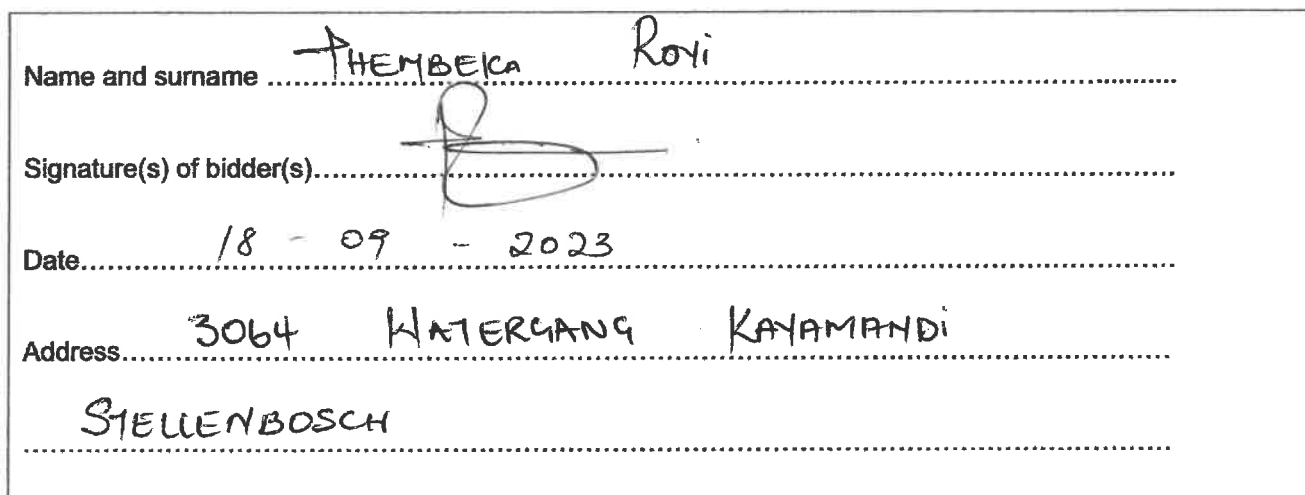 Name and surname THEMBEKA ROYi
Signature(s) of bidder(s)
Date 18 - 09 - 2023
Address 3064 WATERGANG KAYAMANDi
STELLENBOSCH